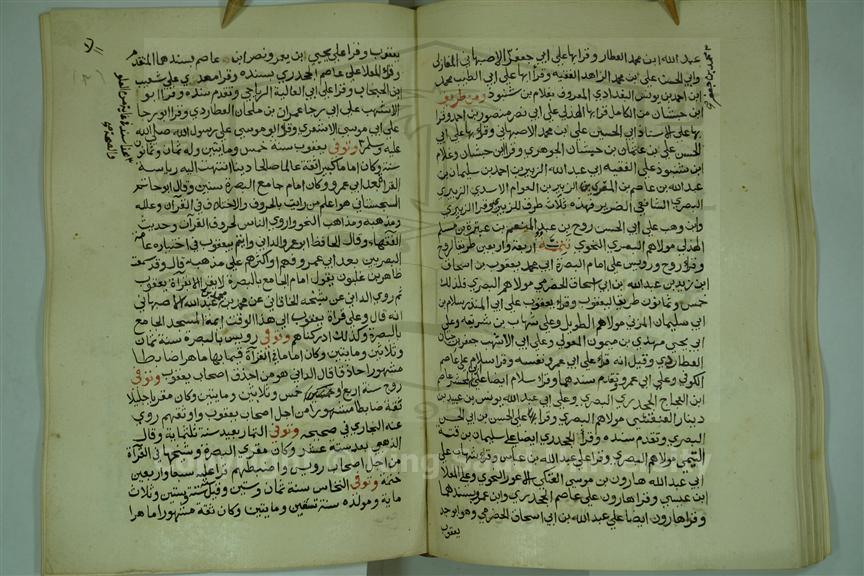 عبد الله ابن محمد العطار وقرا بها على ابي جعفر الاصبهاني المغازلي
وابي الحسن علي بن محمد الزاهد الفقيه وقرا بها على ابي الطيب محمد
ابن احمد بن يونس البغدادي المعروف بغلام بن شنبوذ ومن طريق
ابن حبشان من الكامل قرا بها الهذلي على ابي نصر منصور بن احمد وقرا
بها على الاستاذ ابي الحسين علي بن محمد الاصبهاني وقرا بها على ابي
الحسن علي بن عثمان بن حبشان الجوهري وقرا ابن حبشان وغلام
ابن شنبوذ على الفقيه ابي عبد الله الزبير بن احمد بن سليمان بن
عبد الله بن عاصم بن المنذر بن الزبير بن العوام الاسدي الزبيري
البصري الشافعي الضرير فهذه ثلاث طرق للزبيري وقرا الزبيري
وابن وهب على ابي الحسن روح بن عبد المنعم بن عبدة بن مسلم
الهذلي مولاهم البصري النحوي تتمة اربعة واربعين طريقا لروح
وقرا روح ورويس على امام البصرة ابي محمد يعقوب بن اسحاق
ابن زيد بن عبد الله بن ابي اسحاق الحضرمي مولاهم البصري فذلك
خمس وثمانون طريقا ليعقوب وقرا يعقوب على ابي المنذر سلام بن
ابي سليمان المزني مولاهم الطويل وعلى شهاب بن شريفة وعلى
ابي يحيى مهدي بن ميمون المعولي وعلى ابي الاشهب جعفر بن حيان
العطاردي وقيل انه قرا على ابي عمرو نفسه وقرا سلام على عاصم
الكوفي وعلى ابي عمرو وتقدم سندهما وقرا سلام ايضا على عاصم
ابن العجاج الجحدري البصري وعلى ابي عبد الله يونس بن عبيد بن
دينار العبقسي مولاهم البصري وقرا على الحسن بن ابي الحسن
البصري وتقدم سنده وقرا الجحدري ايضا على سليمان بن قتة
التيمي مولاهم البصري وقرا على عبد الله بن عباس وقرا شهاب على
ابي عبد الله هارون بن موسى العتكي الاعور النحوي وعلى المعلا
ابن عيسى وقرا هارون على عاصم الجحدري وابي عمرو بسندهما
وقرا هارون ايضا على عبد الله بن ابي اسحاق الحضرمي وهو ابو جد
يعقوب
يعقوب وقرا على يحيى ابن يعمر ونصر ابن عاصم بسندهما المتقدم
وقرا المعلا على عاصم الجحدري بسنده وقرا مهدي على شعيب
ابن الحبحاب وقرا على ابي العالية الرياحي وتقدم سنده وقرا ابو
الاشهب على ابي رجا عمران بن ملحان العطاردي وقرا ابو رجا
على ابي موسى الاشعري وقرا ابو موسى على رسول الله صلى الله
عليه وسلم وتوفي يعقوب سنة خمس ومايتين وله ثمان وثمانون
سنة وكان اماما كبيرا ثقة عالما صالحا دينا انتهت اليه رياسة
القرا بعد ابي عمرو وكان امام جامع البصرة سنين وقال ابو حاتم
السجستاني هو اعلم من رايت بالحروف والاختلاف في القرآن وعلله
ومذهبه ومذاهب النحو واروى الناس لحروف القرآن وحديث
الفقهاء وقال الحافظ ابو عمرو الداني وائتم بيعقوب في اختياره عامة
البصريين بعد ابي عمرو فهم او اكثرهم على مذهبه قال وقد سمعت
طاهر بن غلبون يقول امام الجامع بالبصرة لا يقرا الا بقراة يعقوب
ثم روى الداني عن شيخه الخاقاني عن محمد بن محمد بن عبد الله الاصبهاني
انه قال وعلى قراة يعقوب الى هذا الوقت ايمة المسجد الجامع
بالبصرة وكذلك ادركناهم وتوفي رويس بالبصرة سنة ثمان
وثلاثين ومايتين وكان اماما في القراة قيما بها ماهرا ضابطا
مشهورا حاذقا قال الداني هو من احذق اصحاب يعقوب وتوفي
روح سنة اربع او خمس وثلاثين ومايتين وكان مقريا جليلا
ثقة ضابطا مشهورا من اجل اصحاب يعقوب واوثقهم روى
عنه البخاري في صحيحه وتوفي التمار بعيد سنة ثلثماية وقال
الذهبي بعد سنة عشر وكان مقرئ البصرة وشيخها في القراة
من اجل اصحاب رويس واضبطهم قرا عليه سبعا واربعين
ختمة وتوفي النخاس سنة ثمان وستين وقيل سنة ستين وثلاث
ماية ومولده سنة تسعين ومايتين وكان ثقة مشهورا ماهرا